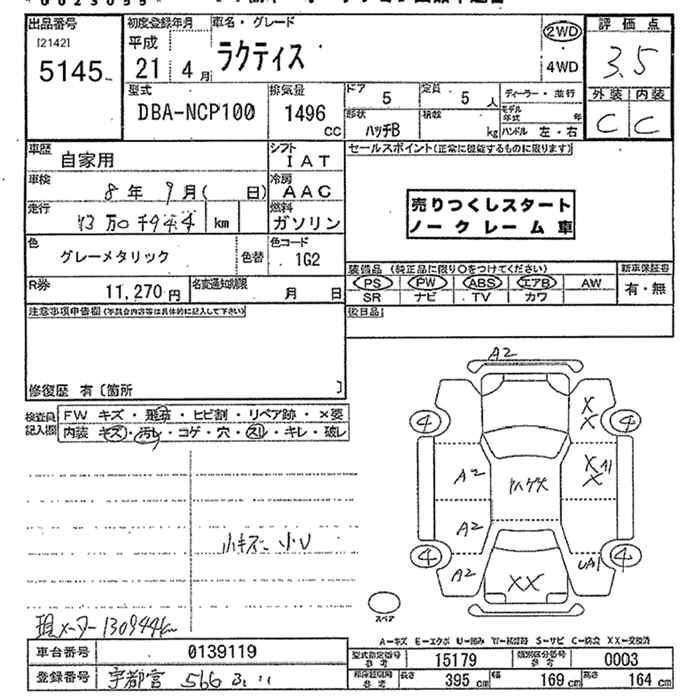 出品番号
[2142]
5145
初度登録年月
平成
21 4月
車名・グレード
ラクティス
2WD
4WD
評価点
3.5
外装 内装
C C
型式
DBA-NCP100
排気量
1496
CC
ドア
5
定員
5人
形状
ハッチB
積数
kg
ディーラー・並行
モデル年式 年
ハンドル 左・右
車歴
自家用
シフト
IAT
車検
8年9月( 日)
冷房
AAC
走行
13万0千944 km
燃料
ガソリン
色
グレーメタリック
色替
色コード
1G2
R券
11,270円
名変通知期限
月 日
セールスポイント(正常に機能するものに限ります)
売りつくしスタート
ノークレーム車
装備品 (純正品に限り○をつけてください)
PS PW ABS エアB AW
SR ナビ TV カワ
新車保証書
有・無
後日品
注意事項申告欄(不具合内容等は具体的に記入して下さい)
修復歴 有〔箇所 〕
検査員記入欄
FW キズ・飛石・ヒビ割・リペア跡・×要
内装 キズ・汚レ・コゲ・穴・スレ・キレ・破レ
小キズ 小U
現メーター130944km
A2
4
4
4
4
A2
A2
A2
ハゲズ
X
X
XA1
X
UA1
XX
スペア
A－キズ E－エクボ U－凹み W－補修跡 S－サビ C－腐食 XX－交換済
車台番号
0139119
登録番号
宇都宮 566
型式指定番号
参考
15179
類別区分番号
参考
0003
長さ
395 cm
幅
169 cm
高さ
164 cm